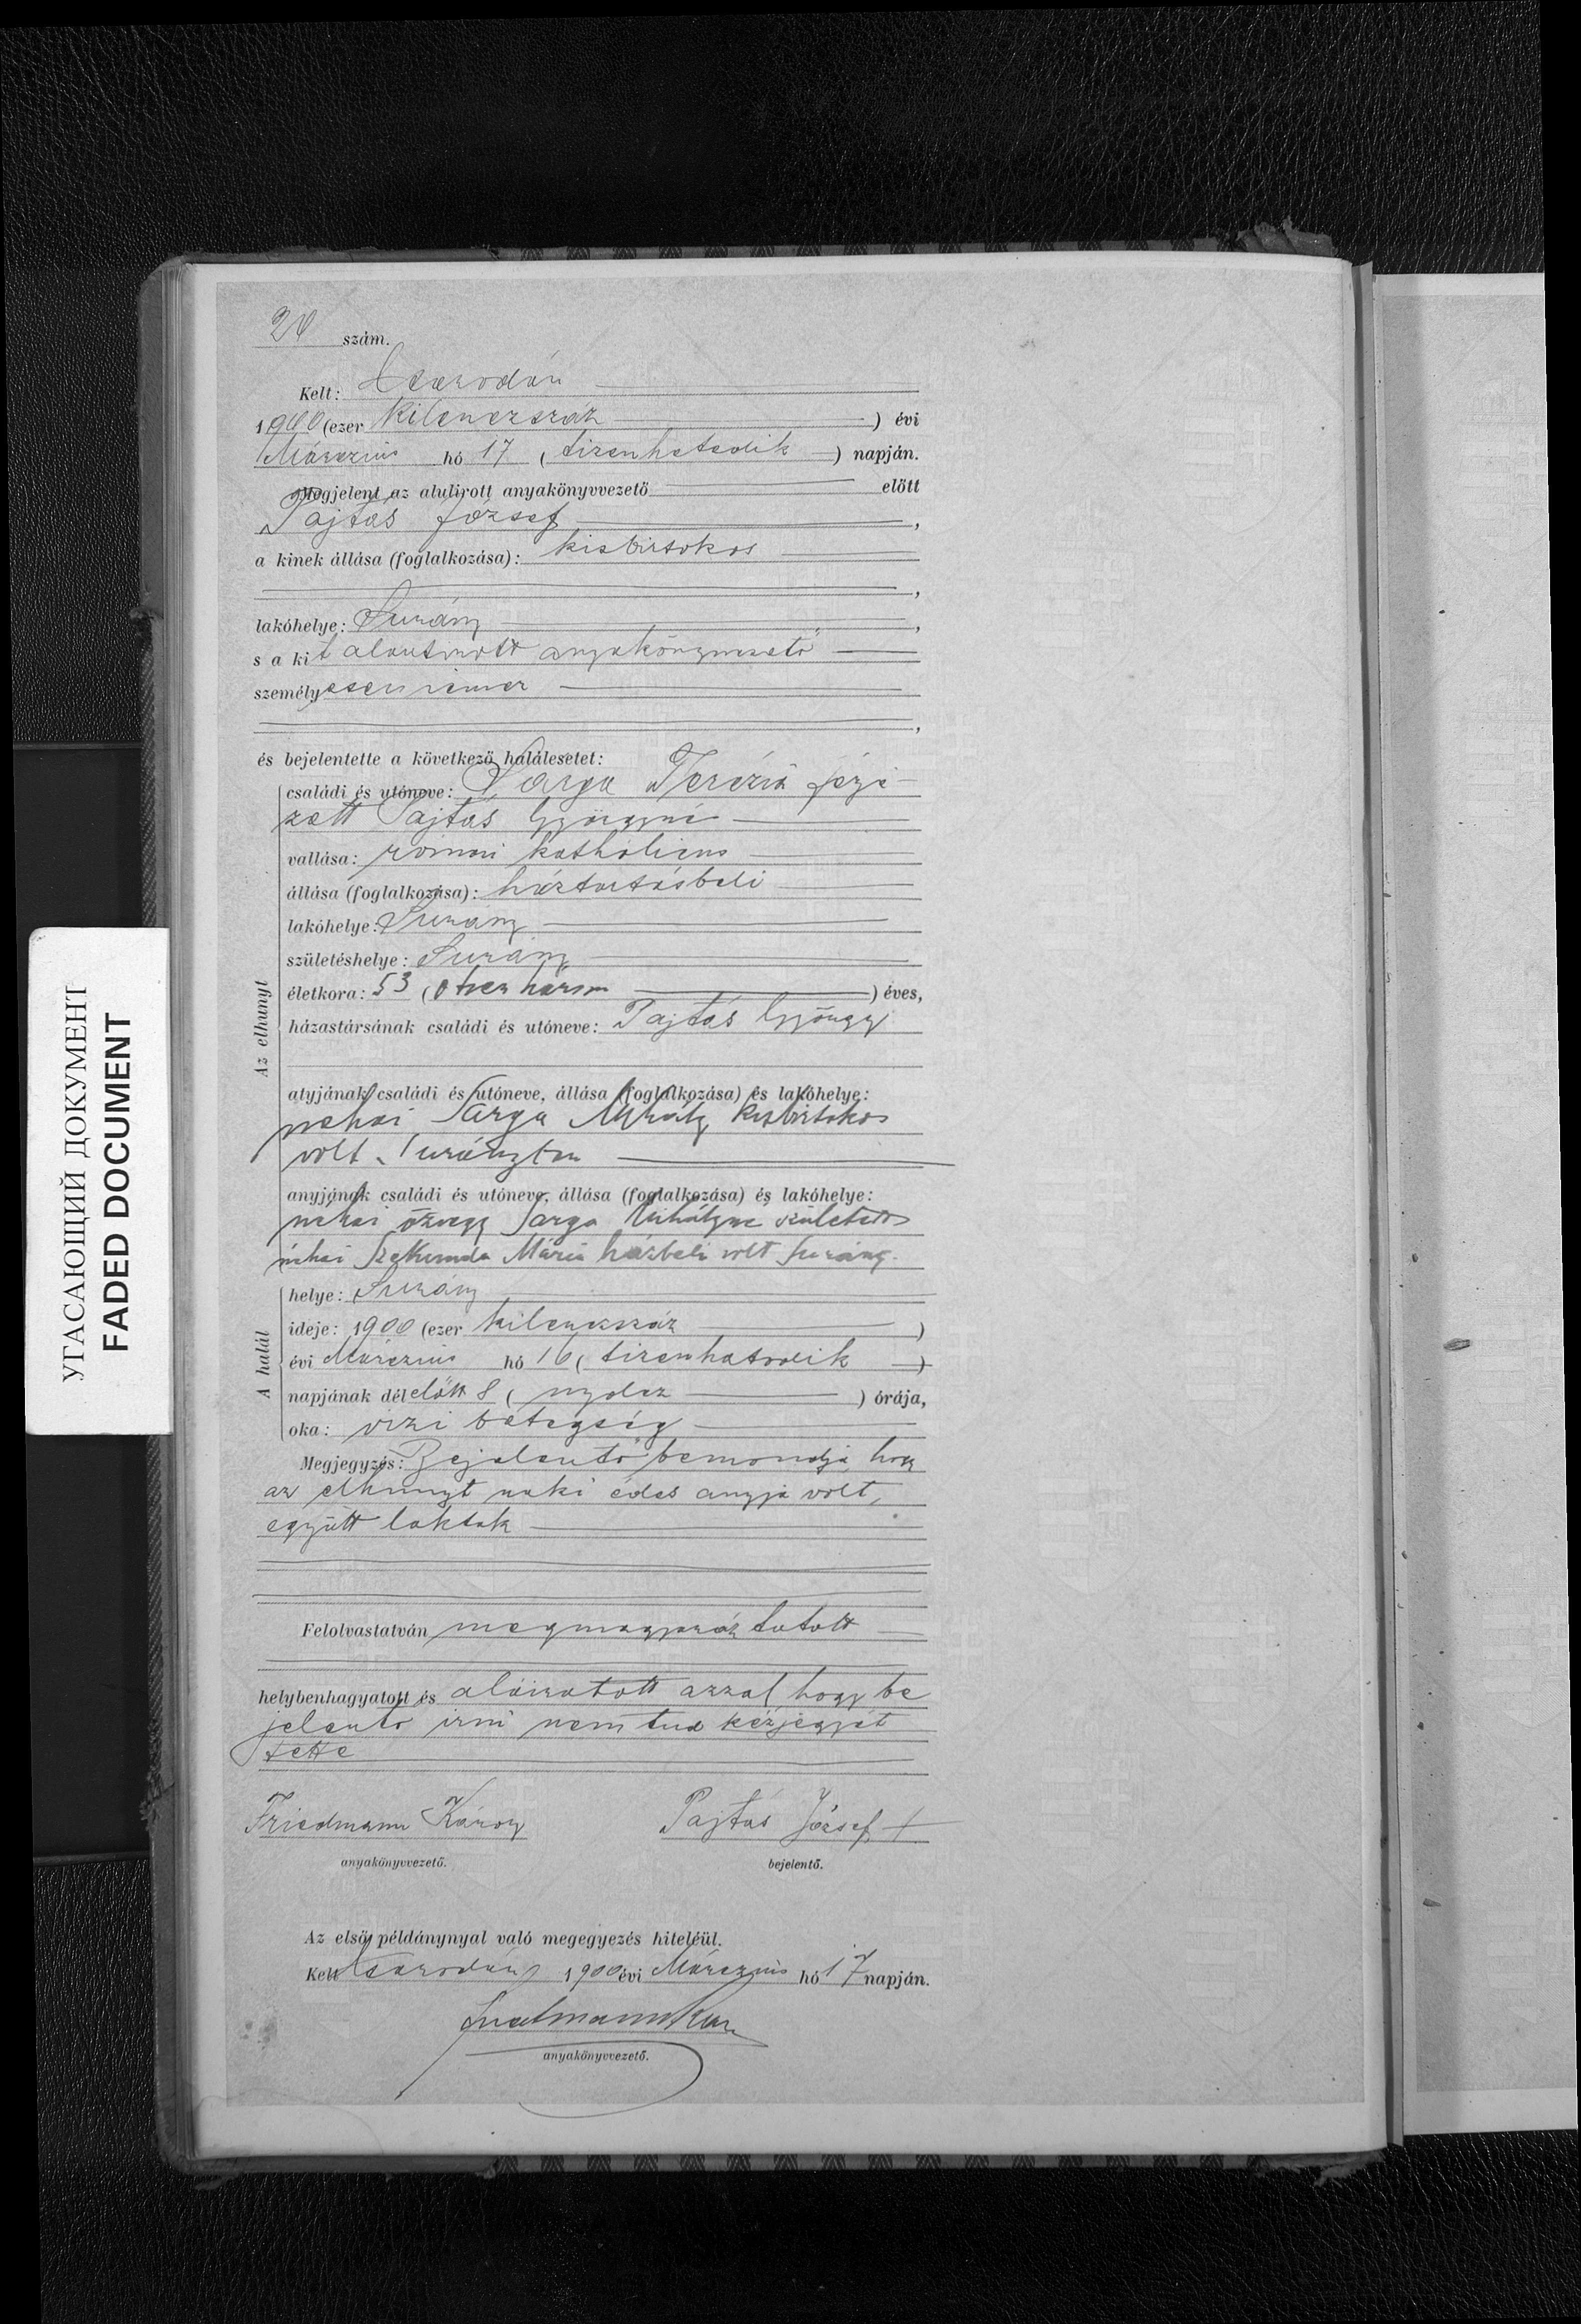 20 szám.
Kelt: Csarodán
1900 (ezer kilenczszáz ) évi
Márczius hó 17 ( tizenhetedik ) napján.
Megjelent az alulirott anyakönyvvezető előtt
Pajtás József ,
a kinek állása (foglalkozása): kisbirtokos
,
lakóhelye: Surány ,
s a kit alantirott anyakönyvvezető
személyesen ismer
,
és bejelentette a következő halálesetet:
családi és utóneve: Sarga Terézia férje-
zett Pajtás Györgyné
vallása: római katholicus
állása (foglalkozása): háztartásbeli
lakóhelye: Surány
születéshelye: Surány
életkora: 53 ( ötven három ) éves,
házastársának családi és utóneve: Pajtás György
Az elhunyt
atyjának családi és utóneve, állása (foglalkozása) és lakóhelye:
néhai Sarga Mihály kisbirtokos
volt Surányban
anyjának családi és utóneve, állása (foglalkozása) és lakóhelye:
néhai özvegy Sarga Mihályné született
néhai Mária házbeli volt Surány.
A halál
helye: Surány
ideje: 1900 (ezer kilenczszáz )
évi Márczius hó 16 ( tizenhatodik )
napjának délelőtt 8 ( nyolcz ) órája,
oka: vizi betegség
Megjegyzés: Bejelentő bemondja, hogy
az elhunyt neki édes anyja volt,
együtt laktak
Felolvastatván megmagyaráztatott
helybenhagyatott és aláiratott azzal hogy be
jelentő irni nem tud kézjegyét
tette
Friedmann Károly Pajtás József +
anyakönyvvezető. bejelentő.
Az első példánynyal való megegyezés hiteléül.
Kelt Csarodán, 1900 évi Márczius hó 17 napján.
anyakönyvvezető.
УГАСАЮЩИЙ ДОКУМЕНТ
FADED DOCUMENT